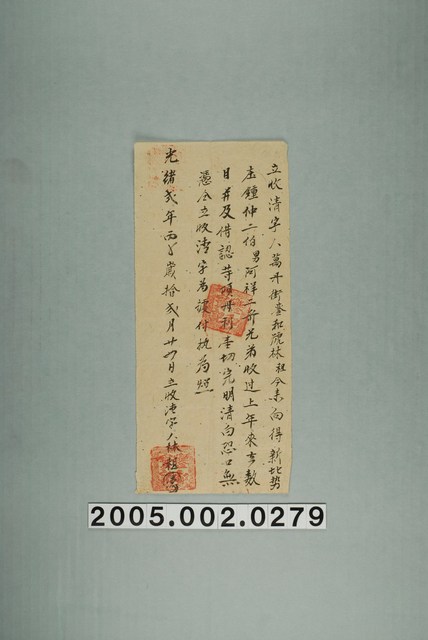 立收清字人萬丹街臺和號林祖今來向得新北勢
庄鍾仲二伯男阿祥二哥兄弟收過上年來去數
目并及借認等項母利壹切完明清白恐口無
憑合立收清字為據付执為炤
光緒弍年丙子歲拾弍月廿四日立收清字人林祖
2005.002.0279